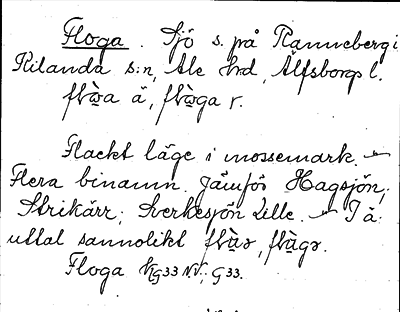 Floga. Sjö s. på Ranneberg i
Kilanda s:n, Ale hd, Älfsborgs l.
flὼa ä, flὼga r.
Flackt läge i mossemark. –
Flera binamn. Jämför Hagsjön,
Strikärr, Sverkesjön Lille. – I ä.
uttal sannolikt flὼə, flὼgə.
Floga G33 N.V; G33.